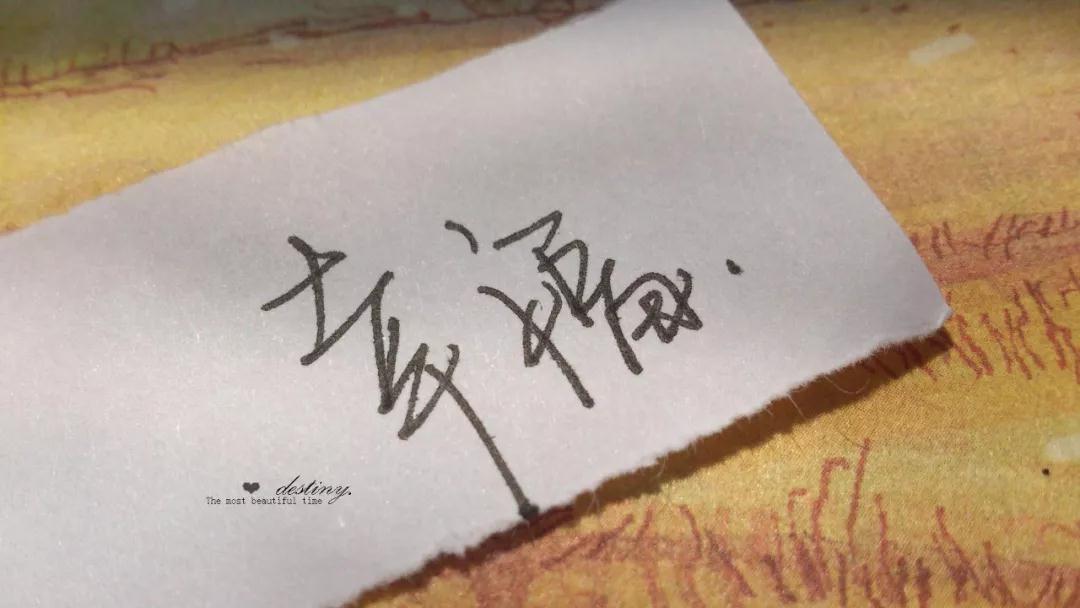 幸福.
destiny.
The most beautiful time